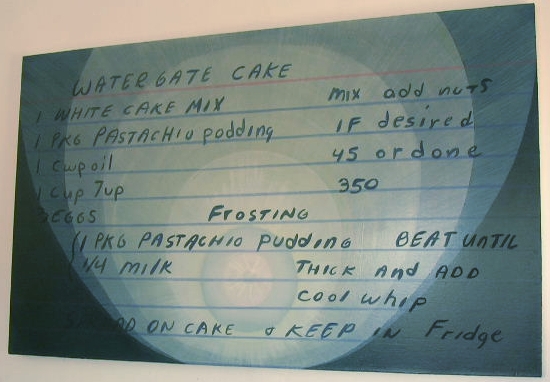 WATERGATE CAKE
1 WHITE CAKE MIX
1 PKG PASTACHIO podding
1 Cup oil
1 Cup 7up
3 EGGS
mix add nuts
IF desired
45 or done
350
FROSTING
1 PKG PASTACHIO pudding
1/4 milk
BEAT UNTIL
THICK And ADD
Cool whip
ON CAKE & KEEP IN Fridge